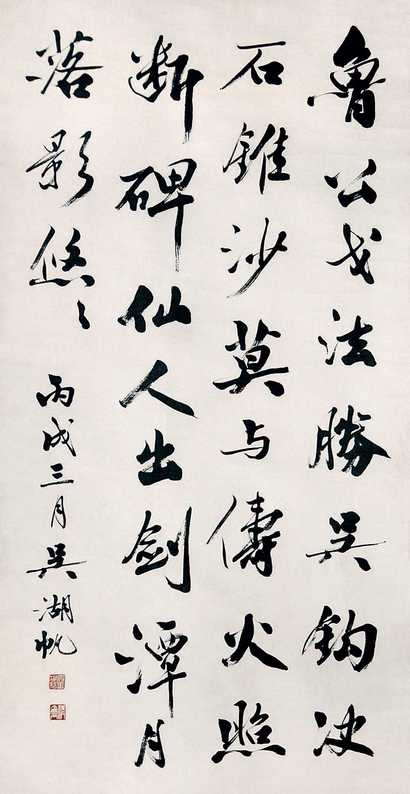 魯公戈法勝吴鈎决
石錐沙莫与儔火照
断碑仙人出劍潭月
落影悠〻
丙戌三月吴湖帆